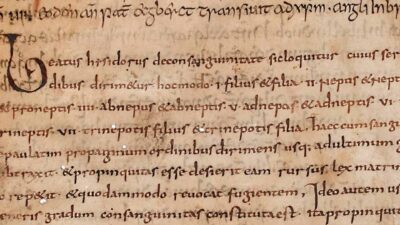 &transivit ad ypm. angli in bri
Beatus hisidorus deconsanguinitate sicloquitur cuius ser
dibus dirimetur hocmodo. i. filius &filia. ii. neptis &nept
&proneptis. iiii. abnepus &abneptis. v. adnepas &adneptis. vi.
trineptis. vii. trinepotis filius &trinepotis filia. haec consangu
paulatim propaginum ordinibus dirimens usq; adultimum g
&propinquitas esse desierit eam rursus lex matri
&quodammodo revocat fugientem, Ideo autem us
generis gradum consanguinitas constituta est. ita propinquit